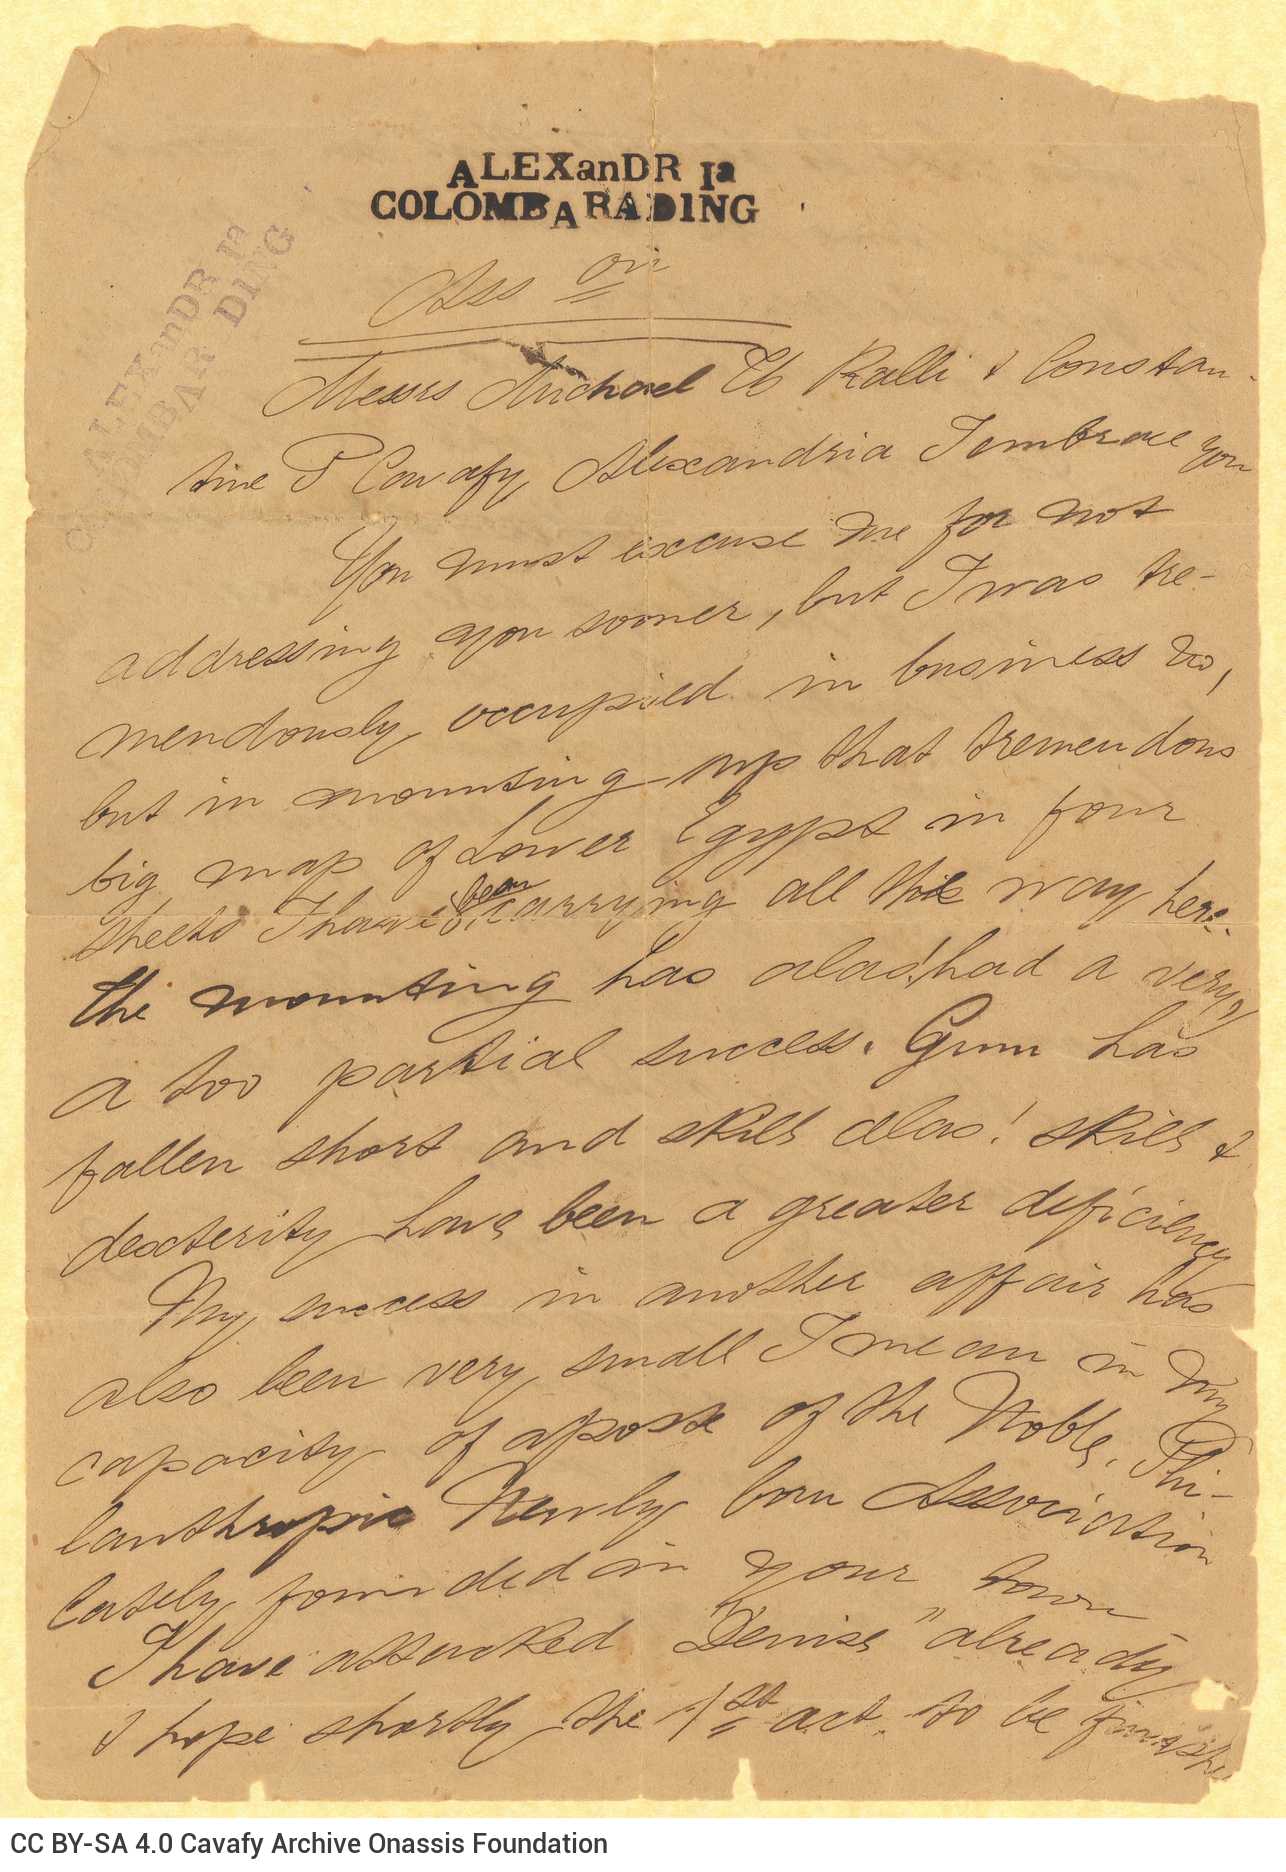 ALEXanDR Ia
COLOMBARADING
Ass on
ALEXanDR Ia
COLOMBAR DING
Messrs Michael Th Ralli & Constan-
tine P Cavafy Alexandria I embrace you
You must excuse me for not
addressing you sooner, but I was tre-
mendously occupied in business no,
but in mounting up that tremendous
big map of Lower Egypt in four
sheets I have been carrying all the way here.
the mounting has alas! had a very,
a too partial success. Gum has
fallen short and skill alas! skill &
dexterity have been a greater deficiency
My success in another affair has
also been very small I mean in my
capacity of apostle of the Noble, Phi-
lanthropic Newly born Association
lately founded in your town
I have attacked "Denise" already
& hope shortly the 1st act to be finished
CC BY-SA 4.0 Cavafy Archive Onassis Foundation